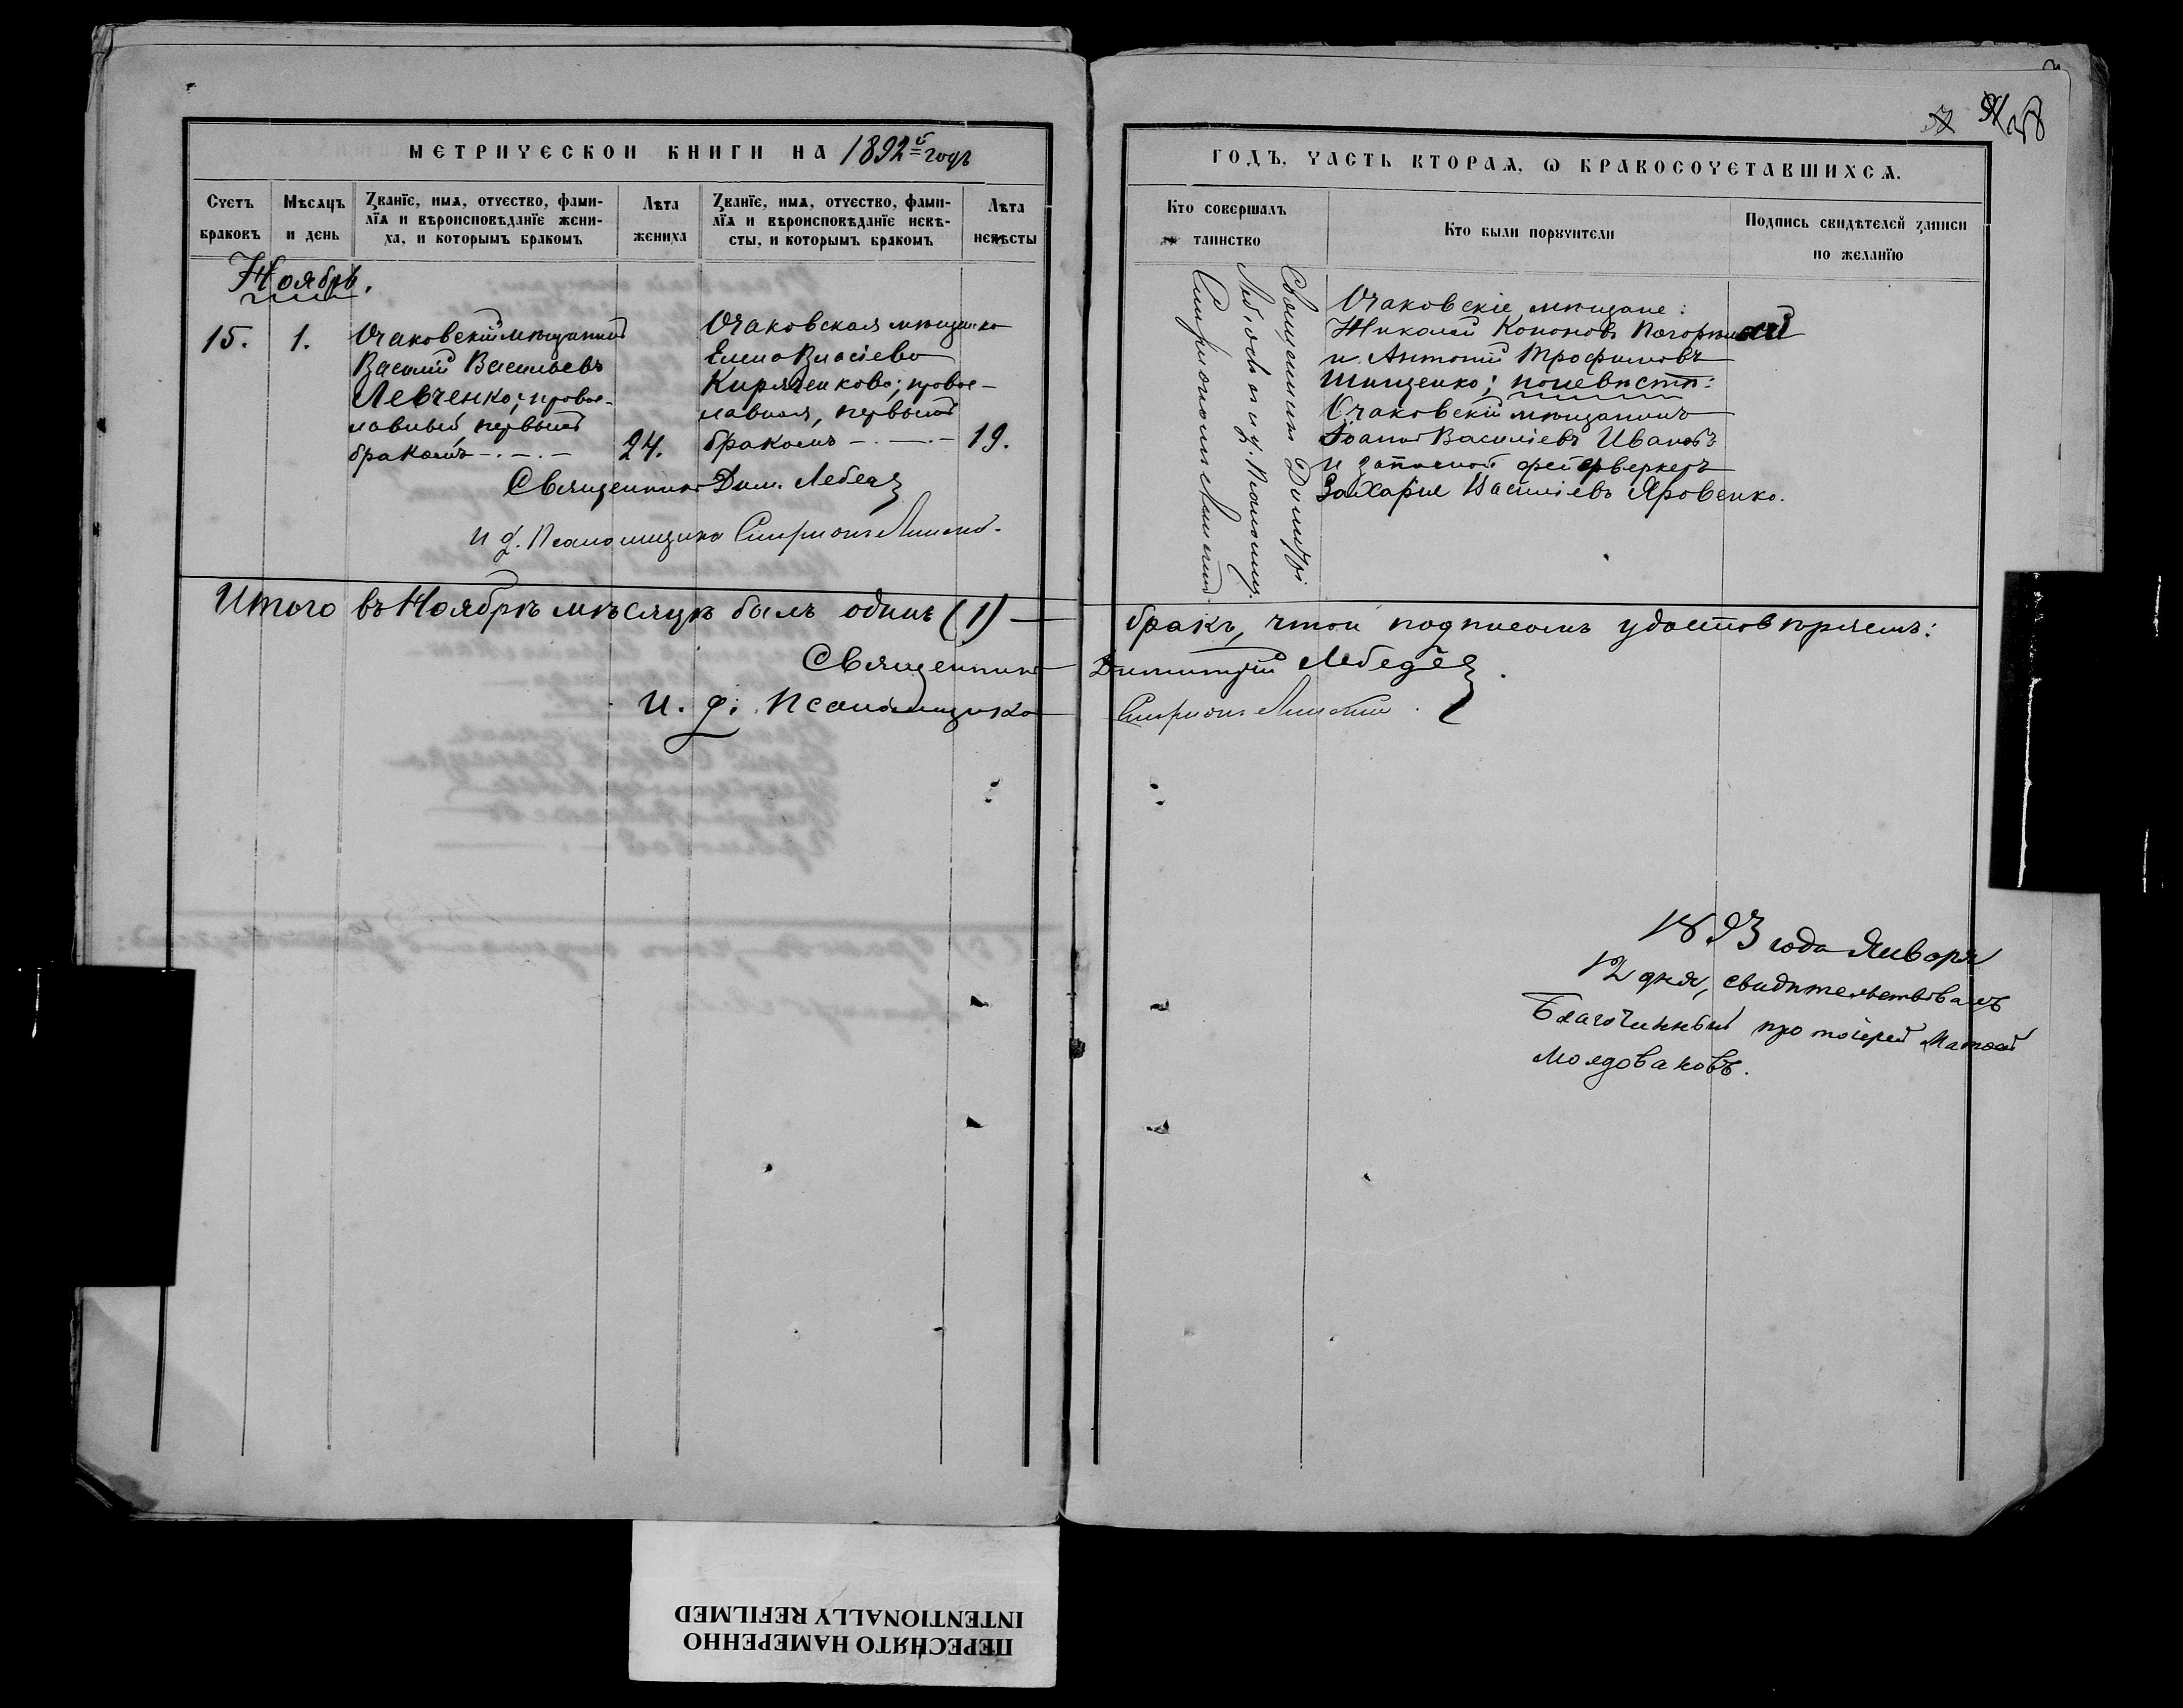 МЕТРИЧЕСКОЙ КНИГИ НА 1892й годъ
Счетъ браковъ
Мѣсяцъ и день
Званіе, имя, отчество, фамилія и вѣроисповѣданіе жениха, и которымъ бракомъ
Лѣта жениха
Званіе, имя, отчество, фамилія и вѣроисповѣданіе невѣсты, и которымъ бракомъ
Лѣта невѣсты
Ноябрь.
15.
1.
Очаковскій мѣщанинъ
Василій Васильевъ
Левченко; право-
славный, первымъ
бракомъ
24.
Очаковская мѣщанка
Елена Власіева
Кирязенкова; правос-
лавная, первымъ
бракомъ
19.
Священникъ Дим. Лебедев
и д. Псаломщика Спиридонъ
Итого въ Ноябрѣ мѣсяцѣ былъ одинъ (1)
Священникъ
и. д. Псаломщика
ГОДЪ, ЧАСТЬ ВТОРАЯ, Ѡ БРАКОСОЧЕТАВШИХСЯ.
Кто совершалъ таинство
Кто были поручители
Подпись свидѣтелей записи по желанію
Священникъ Димитрій
Лебедевъ и д. Псаломщ.
Спиридонъ
Очаковскіе мѣщане:
Николай Кононовъ Погорѣлый
и Антоній Трофимовъ
Шищенко; по невѣстѣ:
Очаковскій мѣщанинъ
Іоаннъ Василіевъ Ивановъ
и запасной фейерверкеръ
Захарія Василіевъ Яровенко.
бракъ, что и подписомъ удостовѣряемъ:
Димитрій Лебедев
Спиридонъ
1893 года Января
12 дня, свидѣтельствовалъ
Благочинный протоіерей Матѳей
Молдовановъ.
ПЕРЕСНЯТО НАМЕРЕННО
INTENTIONALLY REFILMED